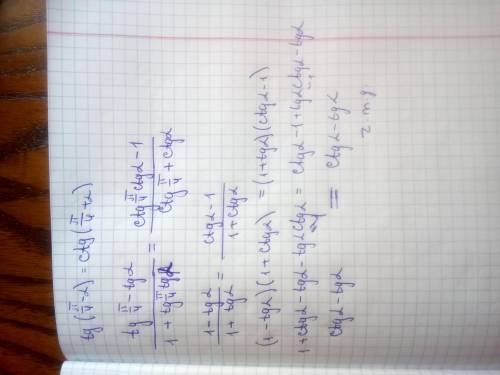 tg(π/4 - α) = ctg(π/4 + α)
(tg π/4 - tgα)/(1 + tg π/4 tgα) = (ctg π/4 ctgα - 1)/(ctg π/4 + ctgα)
(1 - tgα)/(1 + tgα) = (ctgα - 1)/(1 + ctgα)
(1 - tgα)(1 + ctgα) = (1 + tgα)(ctgα - 1)
1 + ctgα - tgα - tgα ctgα = ctgα - 1 + tgα ctgα - tgα
ctgα - tgα = ctgα - tgα